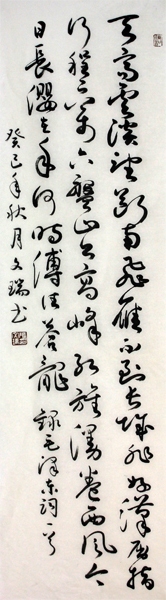 天高雲淡望斷南飛雁不到長城非好漢屈指
行程二萬六盤山上高峰紅旗漫卷西風今
日長纓在手何時縛住蒼龍 錄毛澤東詞一首
癸巳年秋月文瑞書